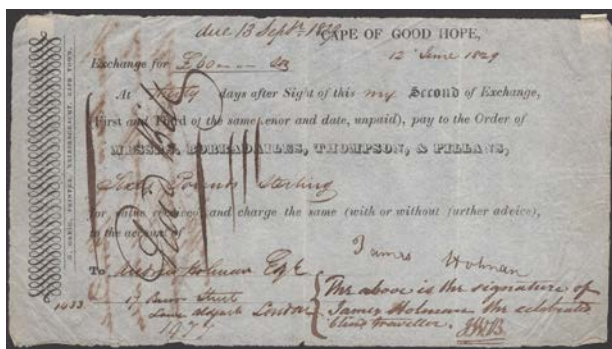 due 13 Septr 1829
CAPE OF GOOD HOPE,
12 June 1829
Exchange for £60
At thirty days after Sight of this my Second of Exchange,
(First and Third of the same tenor and date, unpaid), pay to the Order of
MESSRS. BORRADAILES, THOMPSON, & PILLANS,
Sixty Pounds Sterling
for value received, and charge the same (with or without further advice),
to the account of
James Holman
To Holman Esqr
Street
London
The above is the signature of
James Holman the celebrated
blind traveller.
1977
PRINTER, CAPE TOWN.